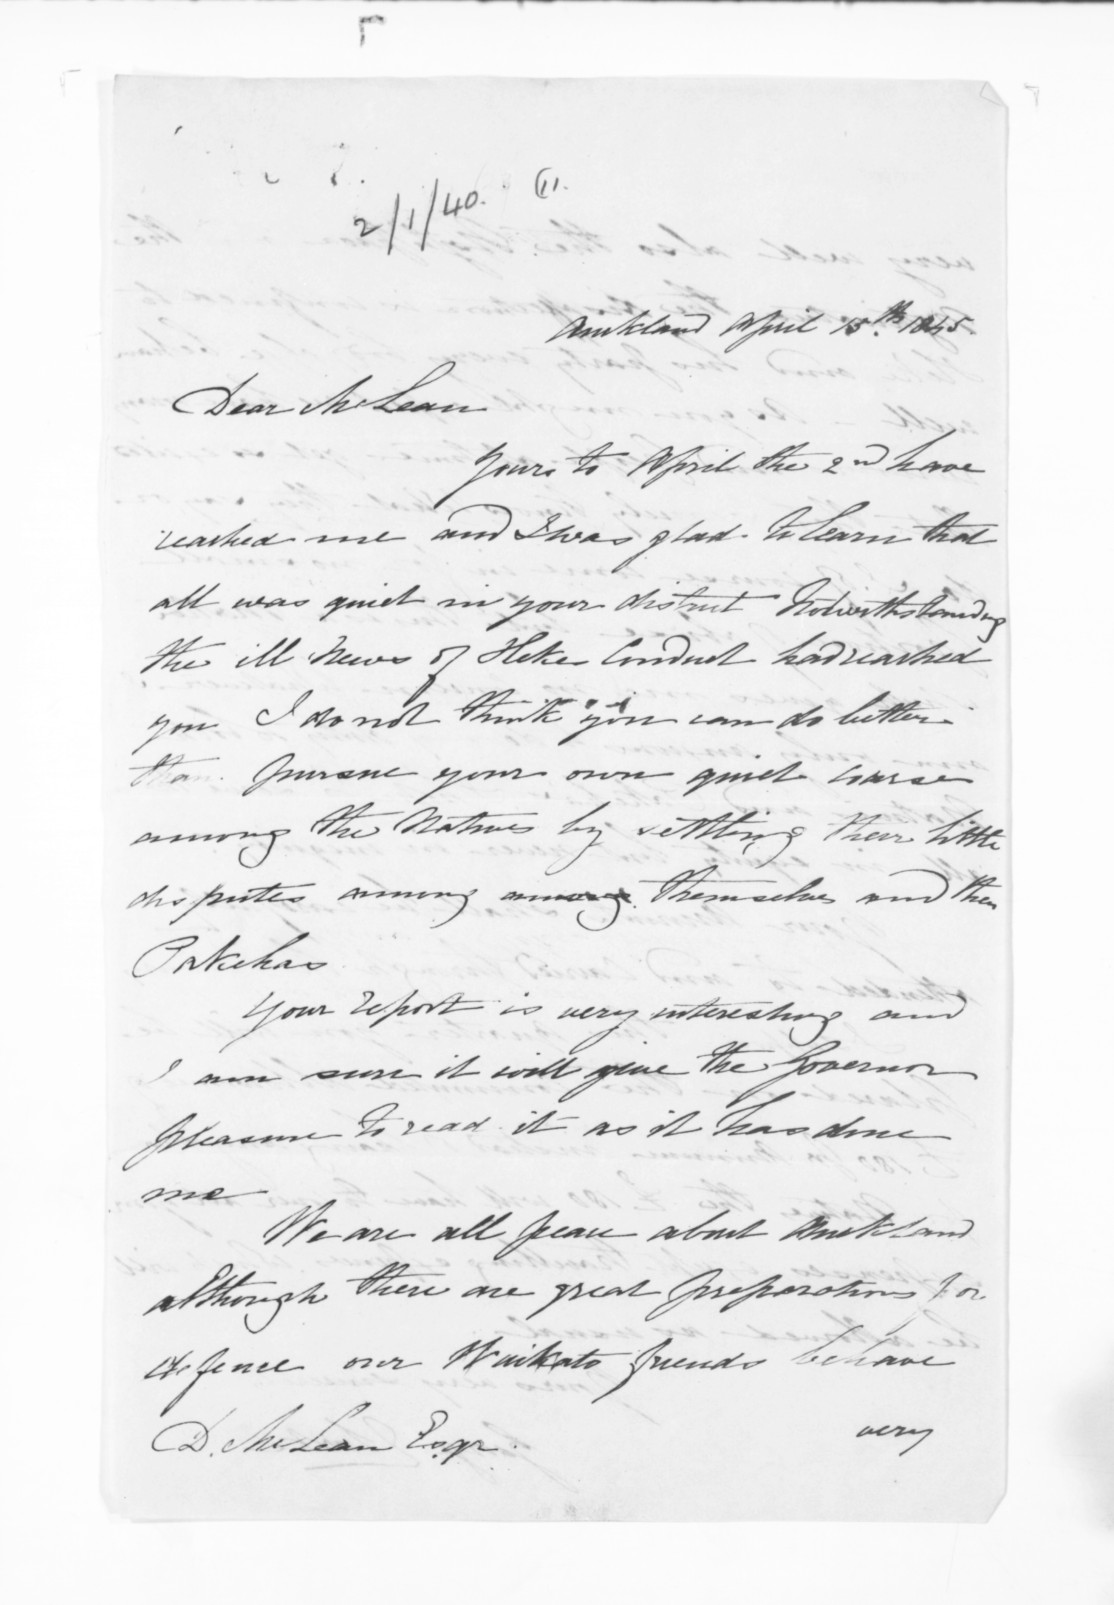 2/1/40. (11.
Auckland April 15.th 1845.
Dear McLean
Yours to April the 2nd have
reached me and I was glad to learn that
all was quiet in your district Notwithstanding
the ill News of Hekes Conduct had reached
you I do not think you can do better
than pursue your own quiet course
among the Natives by settling their little
disputes among among themselves and their
Pakehas
Your report is very interesting and
I am sure it will give the Governor
pleasure to read it as it has done
me
We are all peace about Auckland
although there are great preparations for
defence our Waikato friends behave
very
D. McLean Esqr.